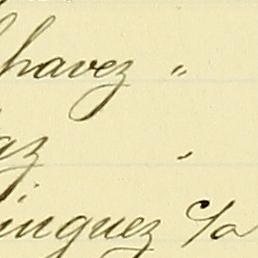 Chavez "
az "
inguez c/a